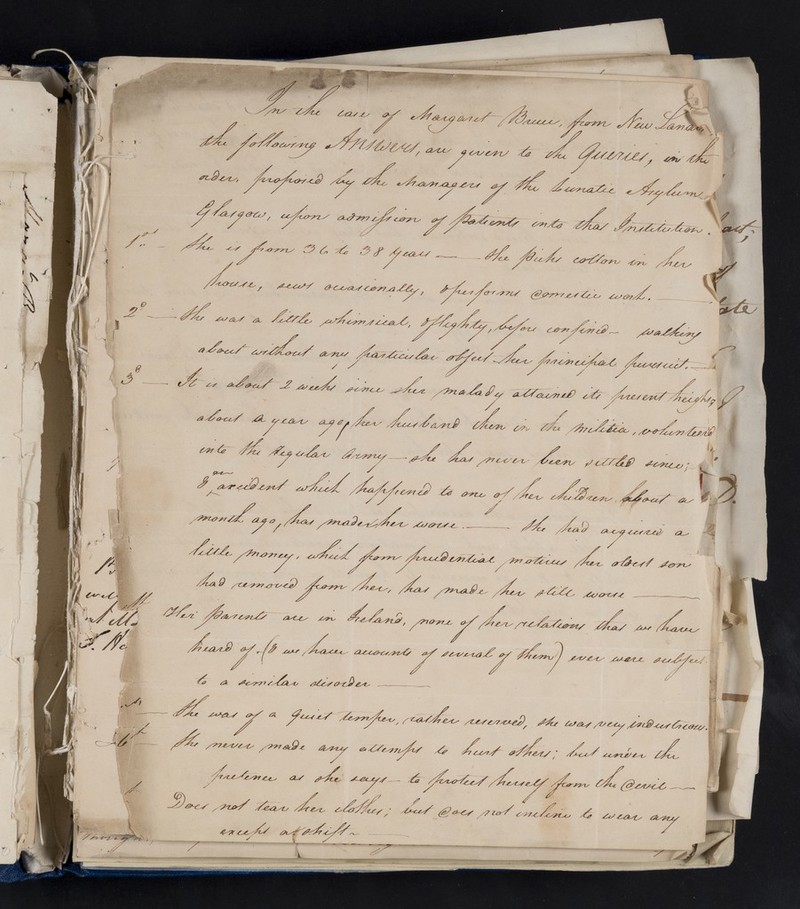 In the case of Margaret Bruce, from New Lanark
the following Answers, are given to the Queries, in the
order, proposed by the Managers of the Lunatic Asylum
Glasgow, upon admission of Patients into that Institution.
1st — She is from 36 to 38 years —— She picks cotton in her
house, sews occasionally, & performs domestic work. —
2d — She was a little whimsical, & flighty, before confined — walking
about without any particular object her principal pursuit. —
3d — It is about 2 weeks since her malady attained its present height;
about a year ago, her husband then in the militia, volunteered
into the regular army — she has never been settled since;
& an accident which happened to one of her children about a
month ago, has made her worse. —— She had acquired a
little money, which from prudential motives her oldest son
had removed from her, has made her still worse ——
Her parents are in Ireland, none of her relations that we have
heard of (& we have accounts of several of them) ever were subject
to a similar disorder ——
— She was of a quiet temper, rather reserved, she was very industrious.
6t — She never made any attempt to hurt others; but under the
pretence as she says — to protect herself from the Devil —
Does not tear her clothes; but does not incline to wear any
except a shift —